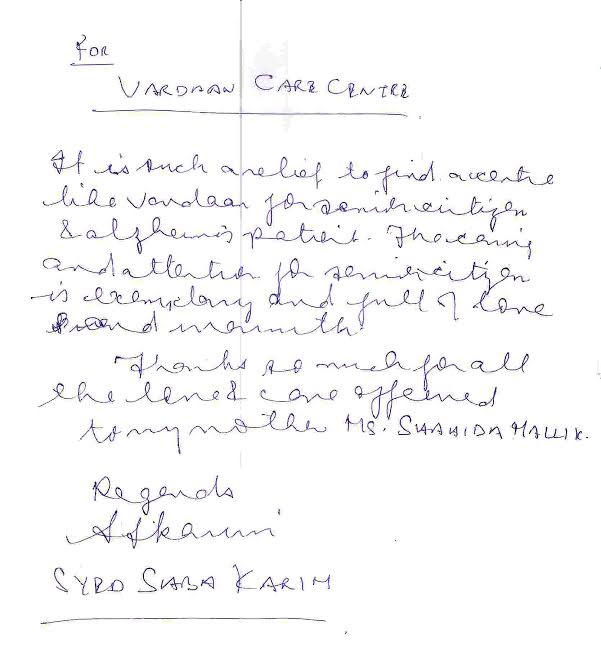 FOR
VARDAAN CARE CENTRE
It is such a relief to find a centre
like Vardaan for senior citizen
& alzheimis patient. The caring
and attention for senior citizen
is exemplary and full of love
and warmth.
Thanks so much for all
the love & care offered
to my mother MS. SHAHIDA MALLIK.
Regards
SYED SABA KARIM